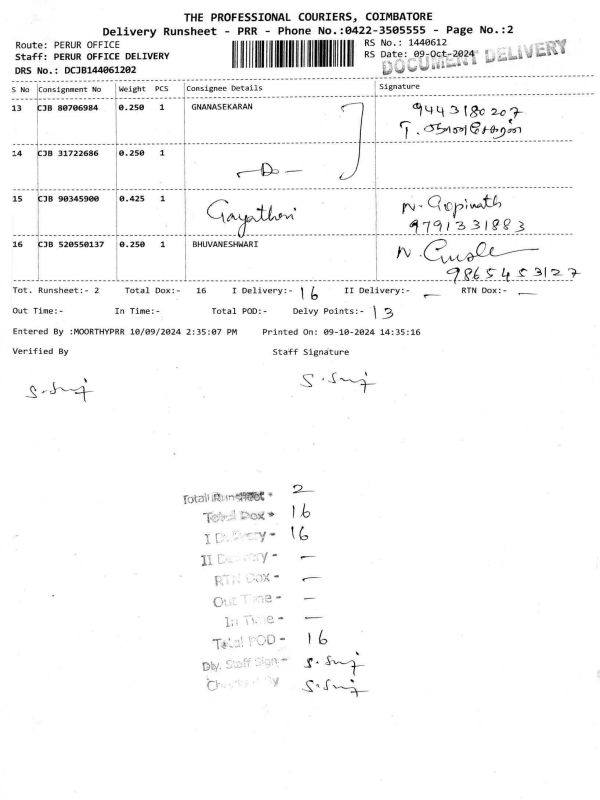 THE PROFESSIONAL COURIERS, COIMBATORE
Delivery Runsheet - PRR - Phone No.:0422-3505555 - Page No.:2
Route: PERUR OFFICE
RS No.: 1440612
Staff: PERUR OFFICE DELIVERY
RS Date: 09-Oct-2024
DOCUMENT DELIVERY
DRS No.: DCJB144061202
S No Consignment No Weight PCS Consignee Details Signature
13 CJB 80706984 0.250 1 GNANASEKARAN 9443180207
14 CJB 31722686 0.250 1 -Do-
15 CJB 90345900 0.425 1 Gayathri N. Gopinath
9791331883
16 CJB 520550137 0.250 1 BHUVANESHWARI
9865453127
Tot. Runsheet:- 2 Total Dox:- 16 I Delivery:- 16 II Delivery:- - RTN Dox:- -
Out Time:- In Time:- Total POD:- Delvy Points:- 13
Entered By :MOORTHYPRR 10/09/2024 2:35:07 PM Printed On: 09-10-2024 14:35:16
Verified By Staff Signature
Total Runsheet - 2
Total Dox - 16
I Delivery - 16
II Delivery - -
RTN Dox - -
Out Time - -
In Time - -
Total POD - 16
Dly. Staff Sign -
Checked By